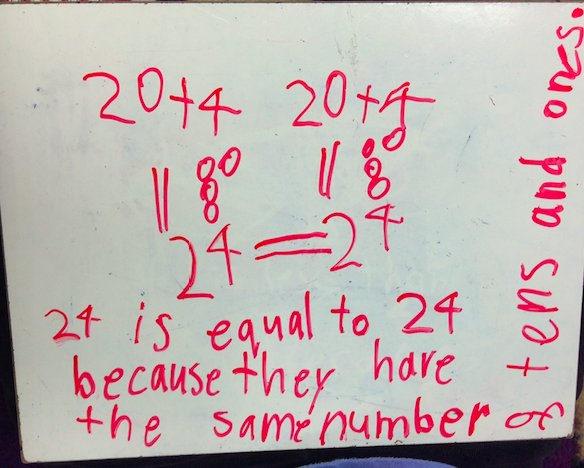 20+4 20+4
24=24
24 is equal to 24
because they have
the same number
of tens and ones.